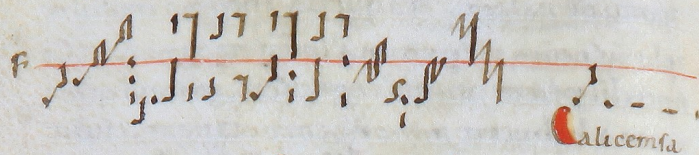 F
Calicem sa